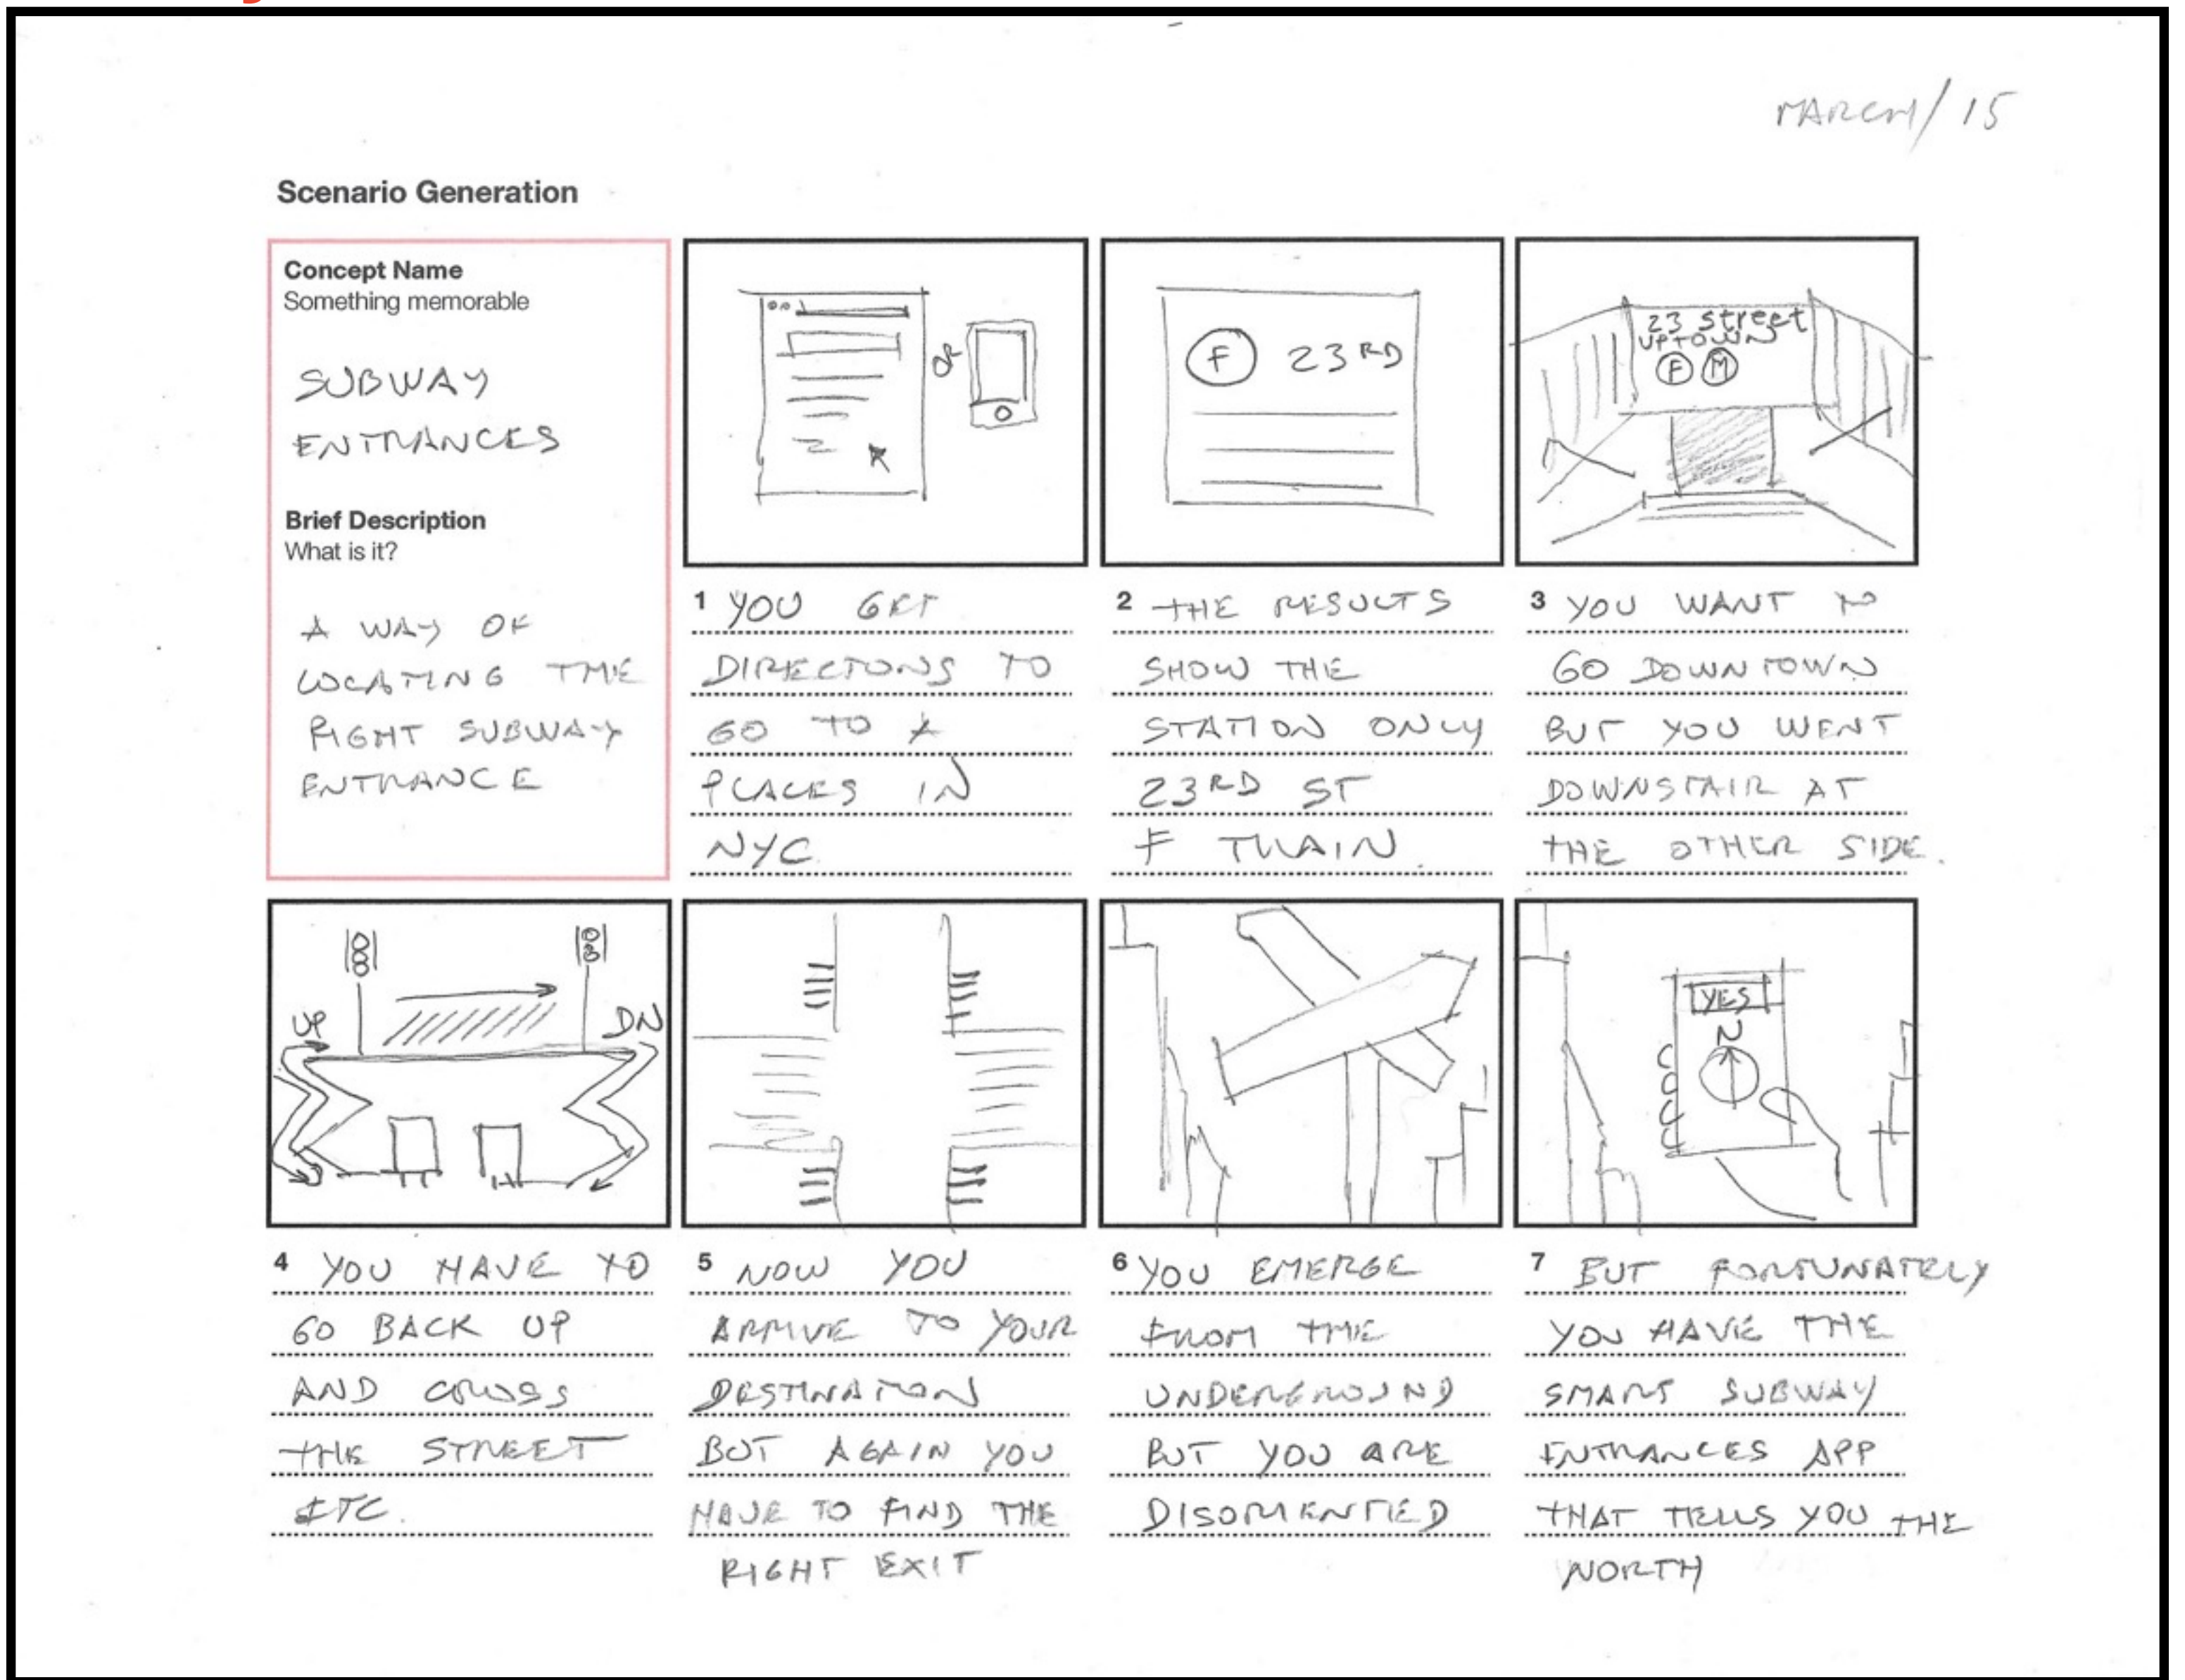 MARCH/15
Scenario Generation
Concept Name
Something memorable
SUBWAY
ENTRANCES
Brief Description
What is it?
A WAY OF
LOCATING THE
RIGHT SUBWAY
ENTRANCE
OR
1 YOU GET
DIRECTONS TO
GO TO A
PLACES IN
NYC.
F 23RD
2 THE RESULTS
SHOW THE
STATION ONLY
23RD ST
F TRAIN.
23 Street
UPTOWN
F M
3 YOU WANT TO
GO DOWNTOWN
BUT YOU WENT
DOWNSTAIR AT
THE OTHER SIDE.
UP DN
4 YOU HAVE TO
GO BACK UP
AND CROSS
THE STREET
ETC.
5 NOW YOU
ARRIVE TO YOUR
DESTINATION
BUT AGAIN YOU
HAVE TO FIND THE
RIGHT EXIT
6 YOU EMERGE
FROM THE
UNDERGROUND
BUT YOU ARE
DISORIENTIED
YES
N
7 BUT FORTUNATELY
YOU HAVE THE
SMART SUBWAY
ENTRANCES APP
THAT TELLS YOU THE
NORTH